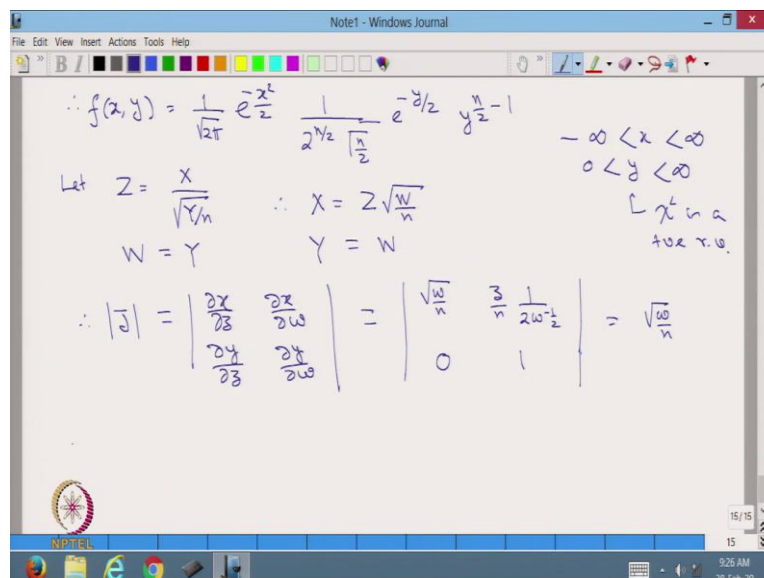 Note1 - Windows Journal
File Edit View Insert Actions Tools Help
∴ f(x, y) = 1/√2π e^(-x²/2) 1/(2^(n/2) Γ(n/2)) e^(-y/2) y^(n/2 - 1)
- ∞ < x < ∞
0 < y < ∞
[ χ² is a
+ve r.v.
Let Z = X/√(Y/n) ∴ X = Z √(W/n)
W = Y Y = W
∴ |J| = | ∂x/∂z ∂x/∂w ; ∂y/∂z ∂y/∂w | = | √(w/n) z/n 1/(2w^(-1/2)) ; 0 1 | = √(w/n)
NPTEL
15/15
15
9:26 AM